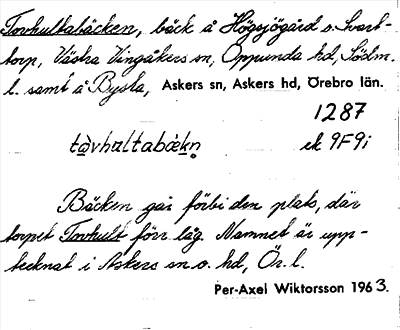 Tovhultabäcken, bäck å Högsjögård o. Svart-
torp, Västra Vingåkers sn, Oppunda hd, Södm.
l. samt å Bysta, Askers sn, Askers hd, Örebro län.
1287
tòvhultabäkn̥ ek 9F9i
Bäcken går förbi den plats, där
torpet Tovhult förr låg. Namnet är upp-
tecknat i Askers sn o. hd, Ör. l.
Per-Axel Wiktorsson 1963.